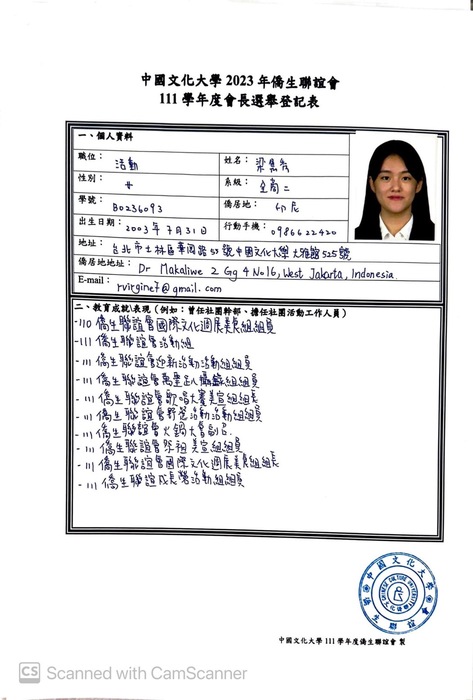 中國文化大學 2023 年僑生聯誼會
111 學年度會長選舉登記表
一、個人資料
職位: 活動
姓名:
性別: 女
系級: 企商二
學號: B0236093
僑居地: 印尼
出生日期: 2003 年 7月31日
行動手機: 0986622420
地址: 台北市士林區華岡路55號中國文化大學大雅館525號
僑居地地址: Dr Makaliwe 2 Gg 4 No16, West Jakarta, Indonesia.
E-mail: rvirgine7@gmail.com
二、教育成就/表現(例如:曾任社團幹部、擔任社團活動工作人員)
-110 僑生聯誼會國際文化週展美食組組員
-111 僑生聯誼會活動組
-111 僑生聯誼會迎新活動活動組組員
-111 僑生聯誼會萬聖趴攝錄組組員
-111 僑生聯誼會歌唱大賽美宣組組長
-111 僑生聯誼會野營活動活動組組員
-111 僑生聯誼會火鍋大會副召
-111 僑生聯誼會祭祖美宣組組員
-111 僑生聯誼會國際文化週展美食組組長
-111 僑生聯誼成長營活動組組員
中國文化大學
CHINESE CULTURE UNIVERSITY
僑生聯誼會
中國文化大學 111 學年度僑生聯誼會 製
CS Scanned with CamScanner